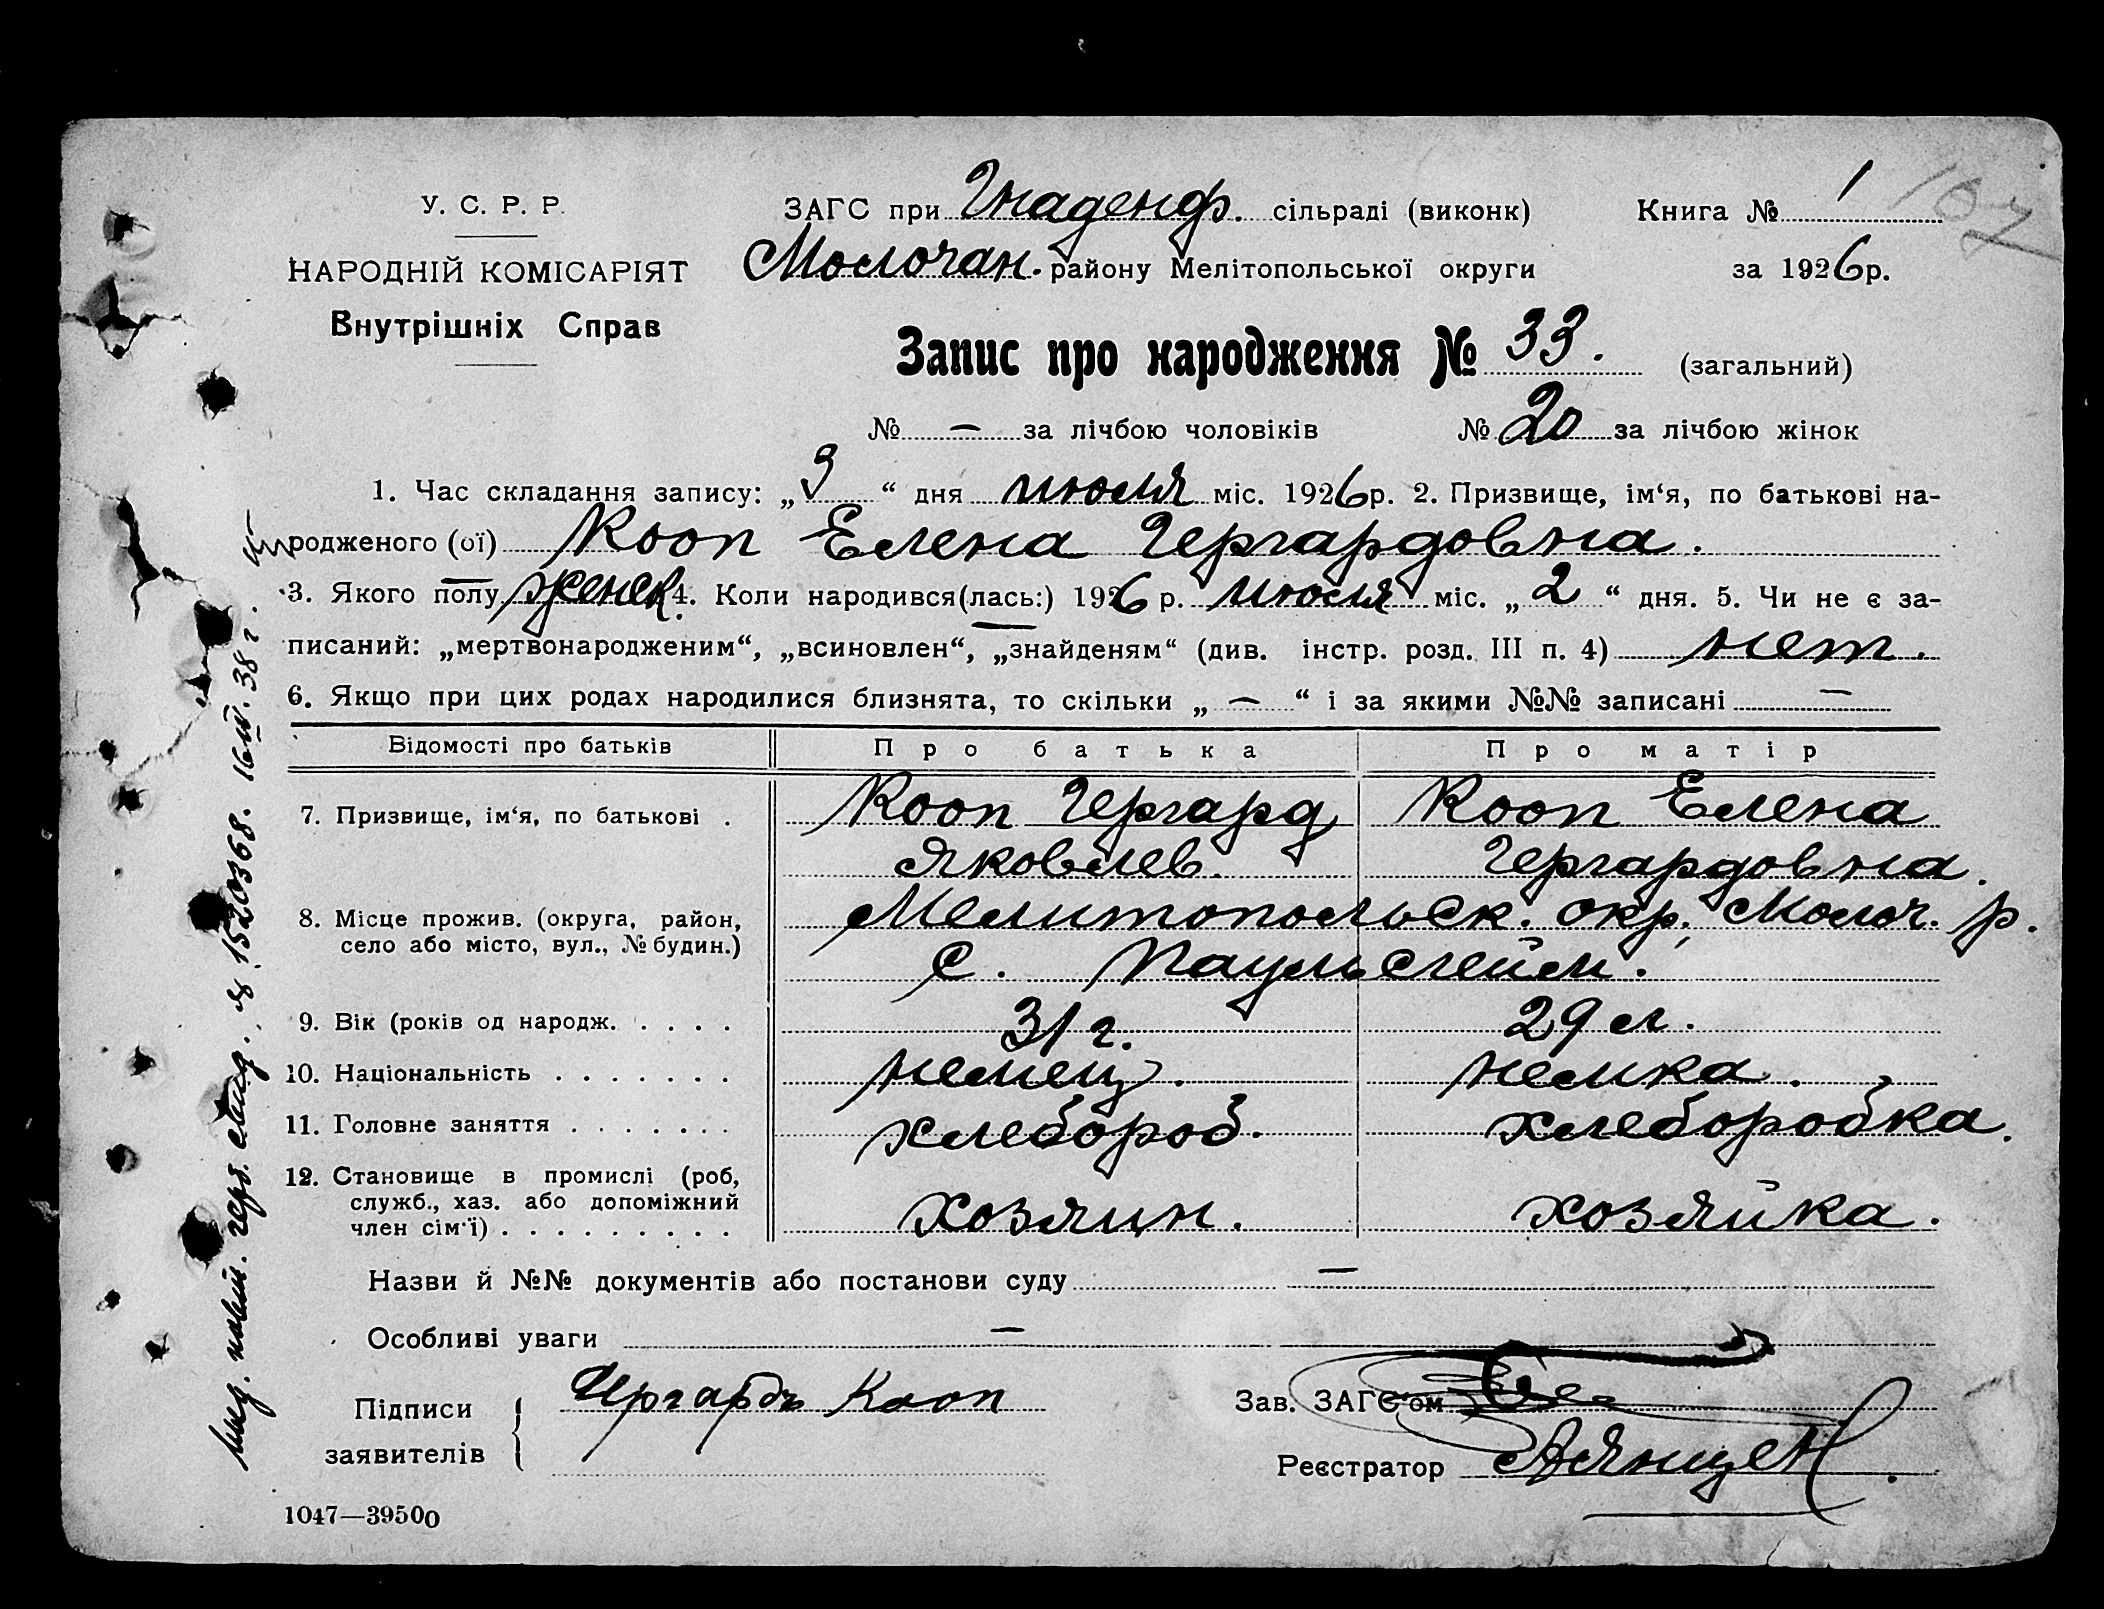 У. С. Р. Р.
НАРОДНІЙ КОМІСАРІЯТ
Внутрішніх Справ
ЗАГС при Гнаденф. сільраді (виконк)
Молочан. району Мелітопольської округи
Книга № 1
107
за 1926 р.
Запис про народження № 33. (загальний)
№ — за лічбою чоловіків № 20 за лічбою жінок
1. Час складання запису: „3“ дня июля міс. 1926 р. 2. Призвище, ім‘я, по батькові на-
родженого (ої) Кооп Елена Гергардовна.
3. Якого полу женск. 4. Коли народився(лась:) 1926 р. июля міс. „2“ дня. 5. Чи не є за-
писаний: „мертвонародженим“, „всиновлен“, „знайденям“ (див. інстр. розд. III п. 4) нет.
6. Якщо при цих родах народилися близнята, то скільки „ — “ і за якими №№ записані —
Відомості про батьків Про батька Про матір
7. Призвище, ім‘я, по батькові . Кооп Гергард Кооп Елена
Яковлев. Гергардовна.
8. Місце прожив. (округа, район, Мелитопольск. окр. Молоч. р.
село або місто, вул., № будин.) с. Паульсгейм.
9. Вік (років од народж. . . . . 31 г. 29 л.
10. Національність . . . . . . . немец. немка.
11. Головне заняття . . . . . . . хлебороб. хлеборобка.
12. Становище в промислі (роб,
служб., хаз. або допоміжний
член сім‘ї) . . . . . . . . . хозяин. хозяйка.
Назви й №№ документів або постанови суду —
Особливі уваги —
Підписи
заявителів
Гергардъ Кооп
Зав. ЗАГС‘ом
Реєстратор
1047—39500
№ 1520368. 16/III. 38 г.